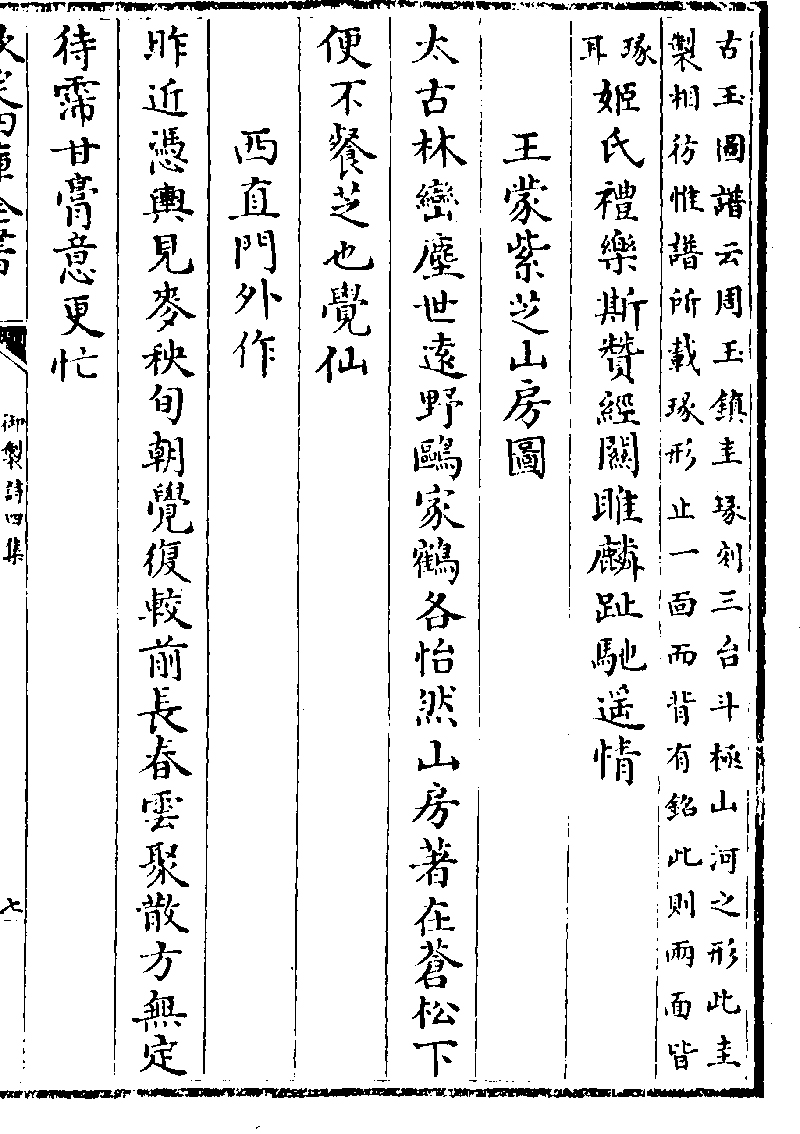 古玉圖譜云周玉鎮圭琢刻三台斗極山河之形此圭
製相彷惟譜所載琢形止一面而背有銘此則兩面皆
琢
耳
姬氏禮樂斯贊經關雎麟趾馳遥情
王蒙紫芝山房圖
太古林巒塵世遠野鷗家鶴各怡然山房著在蒼松下
便不餐芝也覺仙
西直門外作
昨近憑輿見麥秧旬朝覺復較前長春雲聚散方無定
待霈甘膏意更忙
欽定四庫全書
御製詩四集
七